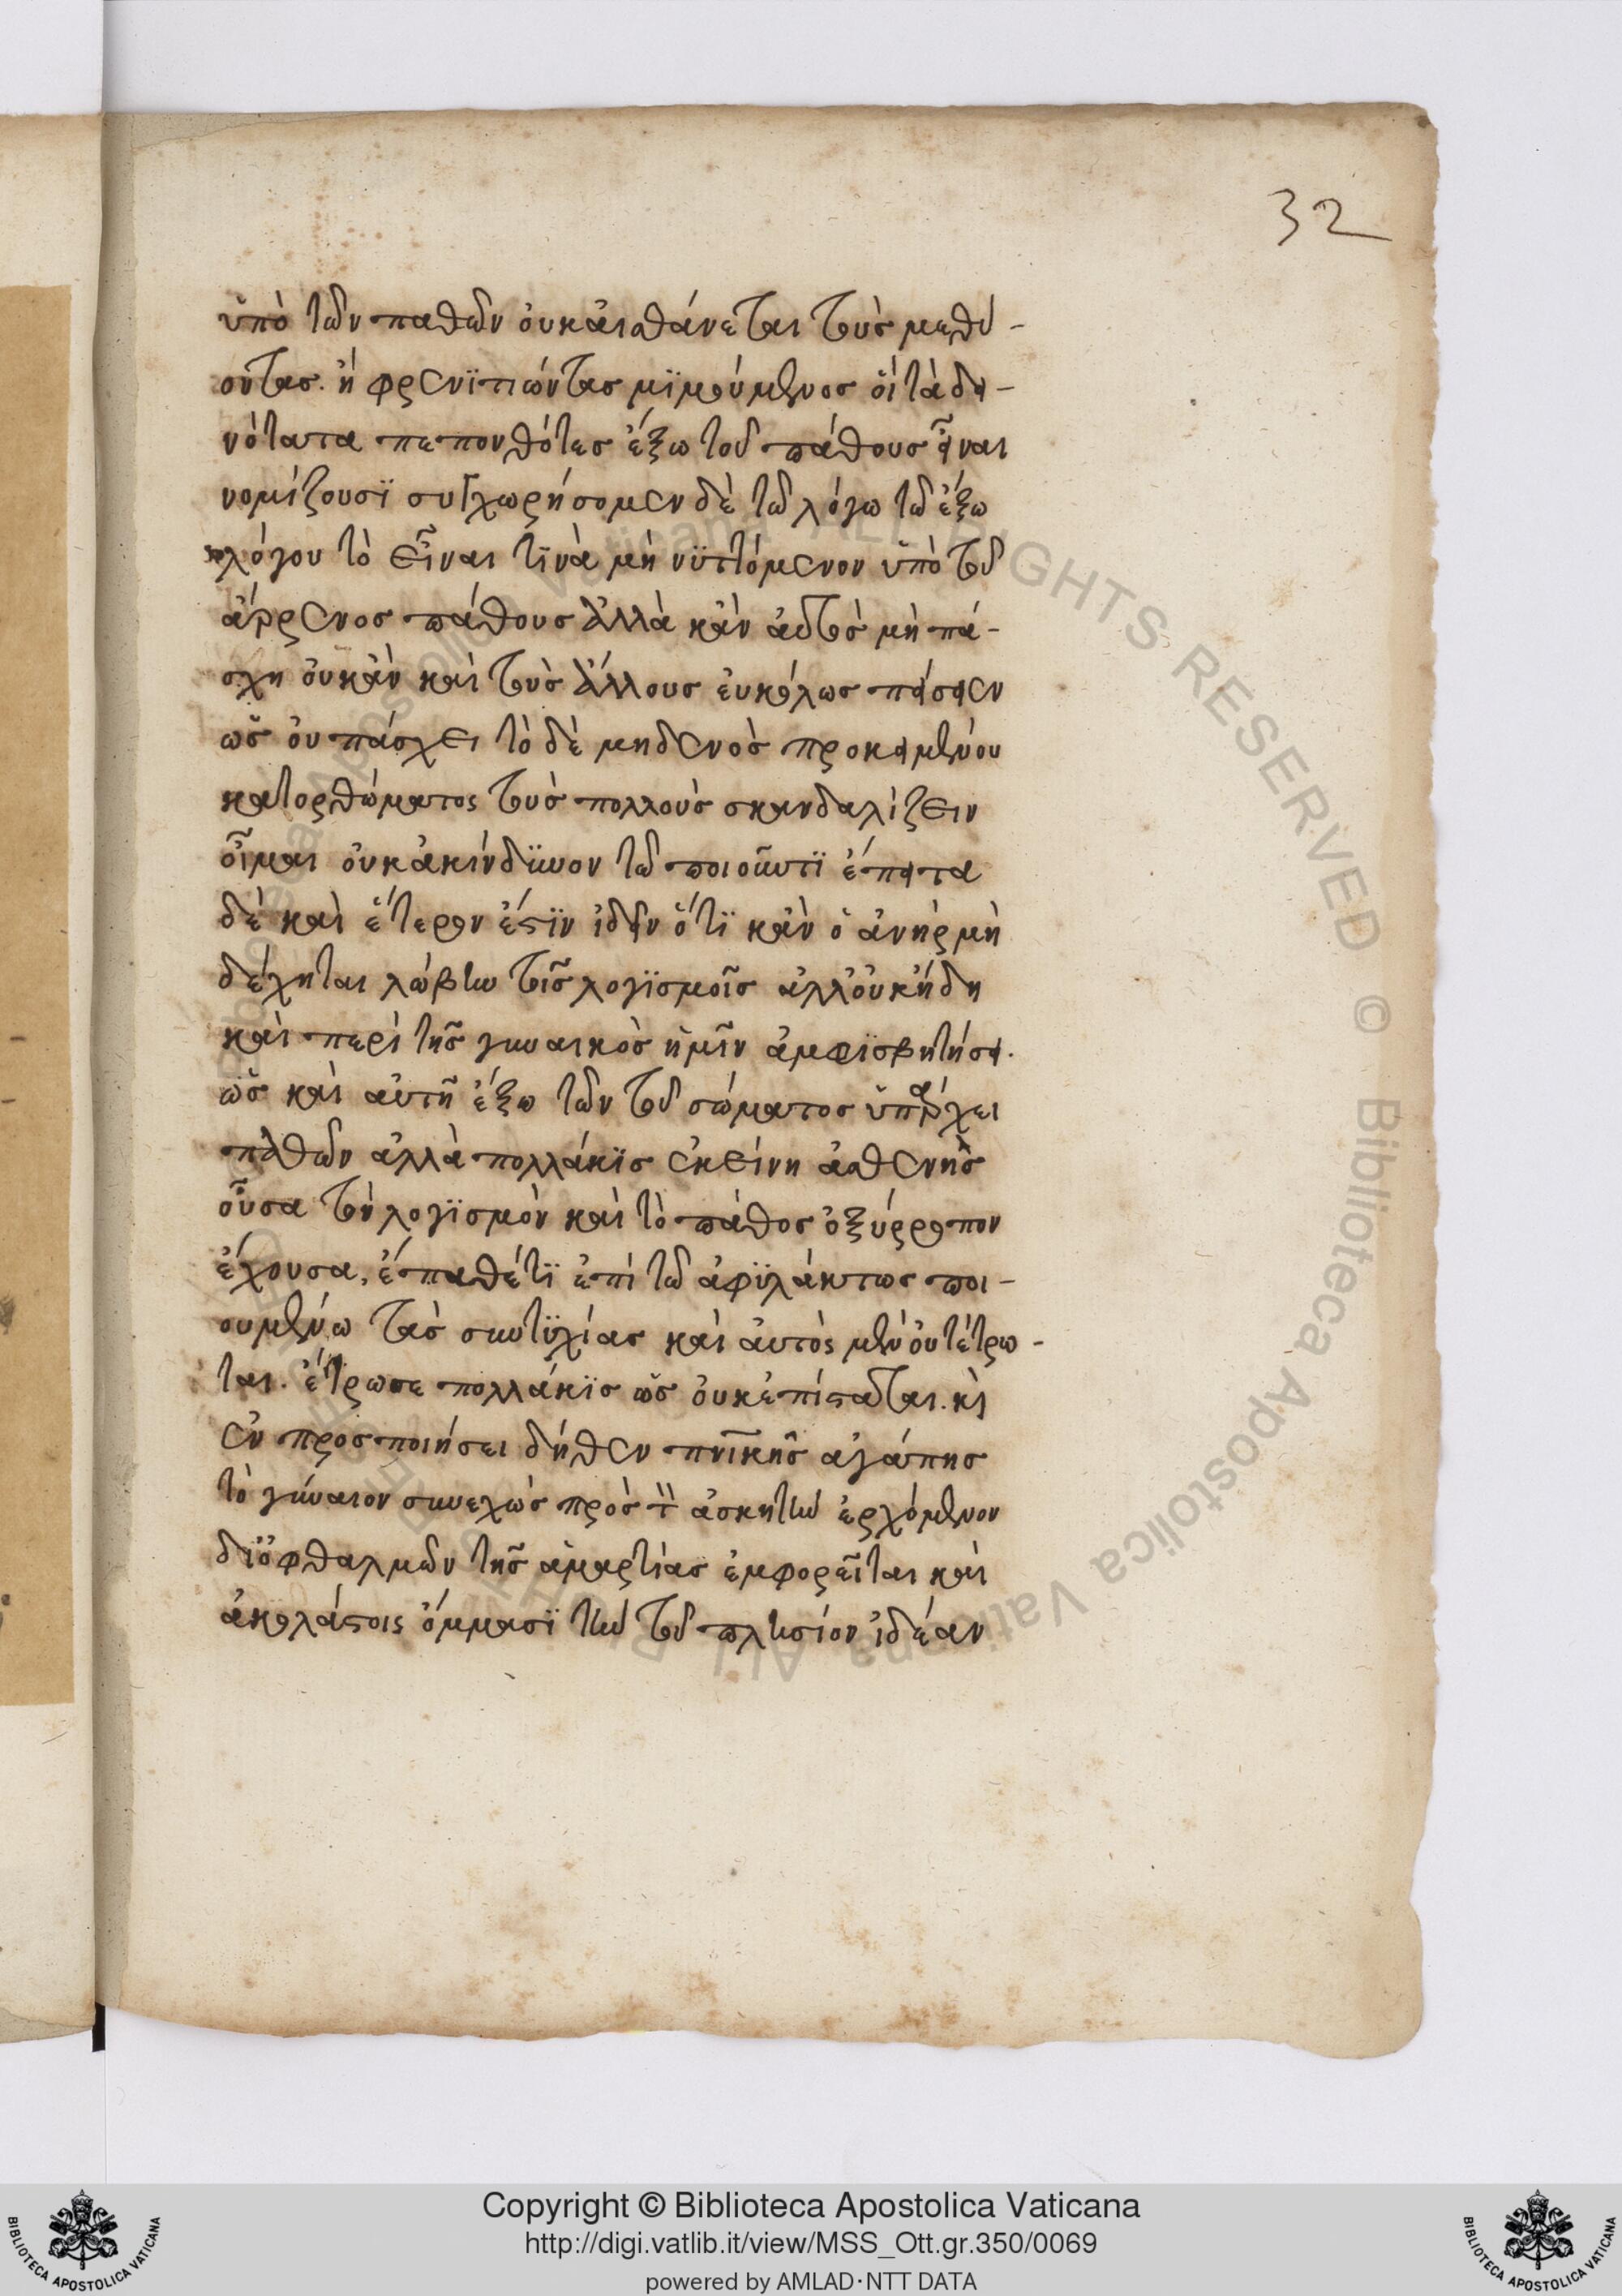 32
ὑπὸ τῶν παθῶν οὐκ αἰσθάνεται τοὺς μεθύ-
οντας. ἢ φρενϊτιώντας μϊμούμενος οἳ τὰ δει-
νότατα πεπονθότες ἔξω τοῦ πάθους εἶναι
νομίζουσϊ συγχωρήσομεν δὲ τῶ λόγω τῶ ἔξω
λόγου τὸ εἶναι τϊνὰ μὴ νϋττόμενον ὑπὸ τοῦ
ἄρρενος πάθους ἀλλὰ κἂν αὐτὸς μὴ πά-
σχη οὐκ ἂν καὶ τοὺς ἄλλους εὐκόλως πείσειεν
ὡς οὐ πάσχει τὸ δὲ μηδενὸς προκειμένου
κατορθώματος τοὺς πολλοὺς σκανδαλίζειν
οἶμαι οὐκ ἀκίνδϋνον τῶ ποιοῦντϊ ἔπειτα
δὲ καὶ ἕτερον ἔστϊν ἰδεῖν ὅτϊ κἂν ὁ ἀνὴρ μὴ
δέχηται λώβην τοῖς λογϊσμοῖς ἀλλ' οὐκ ἤδη
καὶ περὶ τῆς γυναικὸς ἡμῖν ἀμφϊσβητήσει.
ὡς καὶ αὐτὴ ἔξω τῶν τοῦ σώματος ὑπάρχει
παθῶν ἀλλὰ πολλάκϊς ἐκείνη ἀσθενὴς
οὖσα τὸν λογϊσμὸν καὶ τὸ πάθος ὀξύρροπον
ἔχουσα, ἔπαθέ τϊ ἐπὶ τῶ ἀφϋλάκτως ποι-
ουμένω τὰς συντϋχίας καὶ αὐτὸς μὲν οὐ τέτρω-
ται. ἔτρωσε πολλάκϊς ὡς οὐκ ἐπίσταται. κὶ
ἐν προσποιήσει δῆθεν πνϊκῆς ἀγάπης
τὸ γύναιον συνεχῶς πρὸς τ̀ ἀσκητὴν ἐρχόμενον
δϊ' ὀφθαλμῶν τῆς ἁμαρτίας ἐμφορεῖται καὶ
ἀκολάστοις ὄμμασϊ τὴν τοῦ πλησίον ἰδέαν
Copyright © Biblioteca Apostolica Vaticana
http://digi.vatlib.it/view/MSS_Ott.gr.350/0069
powered by AMLAD·NTT DATA
BIBLIOTECA APOSTOLICA VATICANA
BIBLIOTECA APOSTOLICA VATICANA